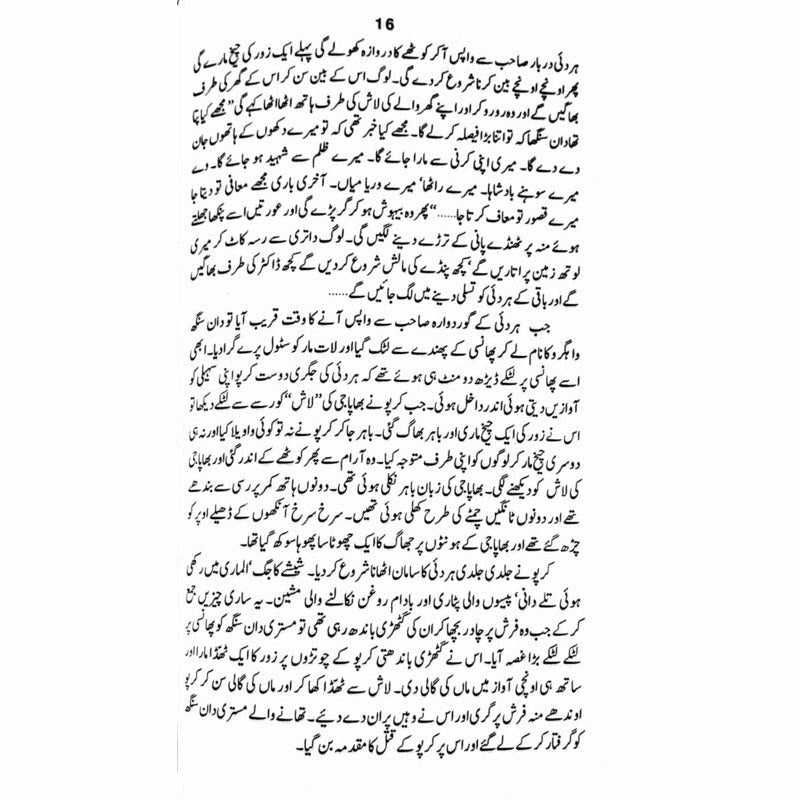 16
ہردئی دربار صاحب سے واپس آ کر کوٹھے کا دروازہ کھولے گی پہلے ایک زور کی چیخ مارے گی
پھر اونچے اونچے بین کرنا شروع کر دے گی۔ لوگ اس کے بین سن کر اس کے گھر کی طرف
بھاگیں گے اور وہ رو رو کر اور اپنے گھر والے کی لاش کی طرف ہاتھ اٹھا اٹھا کہے گی ”مجھے کیا پتا
تھا دان سنگھا کہ تو اتنا بڑا فیصلہ کر لے گا۔ مجھے کیا خبر تھی کہ تو میرے دکھوں کے ہاتھوں جان
دے دے گا۔ میری اپنی کرنی سے مارا جائے گا۔ میرے ظلم سے شہید ہو جائے گا۔ وے
میرے سوہنے بادشاہا۔ میرے راٹھا‘ میرے وریا میاں۔ آخری باری مجھے معافی تو دیتا جا
میرے قصور تو معاف کرتا جا......“ پھر وہ بیہوش ہو کر گر پڑے گی اور عورتیں اسے پنکھا جھلتے
ہوئے منہ پر ٹھنڈے پانی کے تڑڑے دینے لگیں گی۔ لوگ داتری سے رسہ کاٹ کر میری
لوتھ زمین پر اتاریں گے‘ کچھ پنڈے کی مالش شروع کر دیں گے کچھ ڈاکٹر کی طرف بھاگیں
گے اور باقی کے ہردئی کو تسلی دینے میں لگ جائیں گے......
جب ہردئی کے گوردوارہ صاحب سے واپس آنے کا وقت قریب آیا تو دان سنگھ
واہگرو کا نام لے کر پھانسی کے پھندے سے لٹک گیا اور لات مار کو سٹول پرے گرا دیا۔ ابھی
اسے پھانسی پر لٹکے ڈیڑھ دو منٹ ہی ہوئے تھے کہ ہردئی کی جگری دوست کرپو اپنی سہیلی کو
آوازیں دیتی ہوئی اندر داخل ہوئی۔ جب کرپو نے بھاپا جی کی ”لاش“ کو رسے سے لٹکے دیکھا تو
اس نے زور کی ایک چیخ ماری اور باہر بھاگ گئی۔ باہر جا کر کرپو نے نہ تو کوئی واویلا کیا اور نہ ہی
دوسری چیخ مار کر لوگوں کو اپنی طرف متوجہ کیا۔ وہ آرام سے پھر کوٹھے کے اندر گئی اور بھاپا جی
کی لاش کو دیکھنے لگی۔ بھاپا جی کی زبان باہر نکلی ہوئی تھی۔ دونوں ہاتھ کمر پر رسی سے بندھے
تھے اور دونوں ٹانگیں چمٹے کی طرح کھلی ہوئی تھیں۔ سرخ سرخ آنکھوں کے ڈھیلے اوپر کو
چڑھ گئے تھے اور بھاپا جی کے ہونٹوں پر جھاگ کا ایک چھوٹا سا پھوہا سوکھ گیا تھا۔
کرپو نے جلدی جلدی ہردئی کا سامان اٹھانا شروع کر دیا۔ شیشے کا جگ‘ الماری میں رکھی
ہوئی تلے دانی‘ پیسوں والی پٹاری اور بادام روغن نکالنے والی مشین۔ یہ ساری چیزیں جمع
کر کے جب وہ فرش پر چادر بچھا کر ان کی گٹھڑی باندھ رہی تھی تو مستری دان سنگھ کو پھانسی پر
لٹکے لٹکے بڑا غصہ آیا۔ اس نے گٹھڑی باندھتی کرپو کے چوتڑوں پر زور کا ایک ٹھڈا مارا اور
ساتھ ہی اونچی آواز میں ماں کی گالی دی۔ لاش سے ٹھڈا کھا کر اور ماں کی گالی سن کر کرپو
اوندھے منہ فرش پر گری اور اس نے وہیں پران دے دیئے۔ تھانے والے مستری دان سنگھ
کو گرفتار کر کے لے گئے اور اس پر کرپو کے قتل کا مقدمہ بن گیا۔